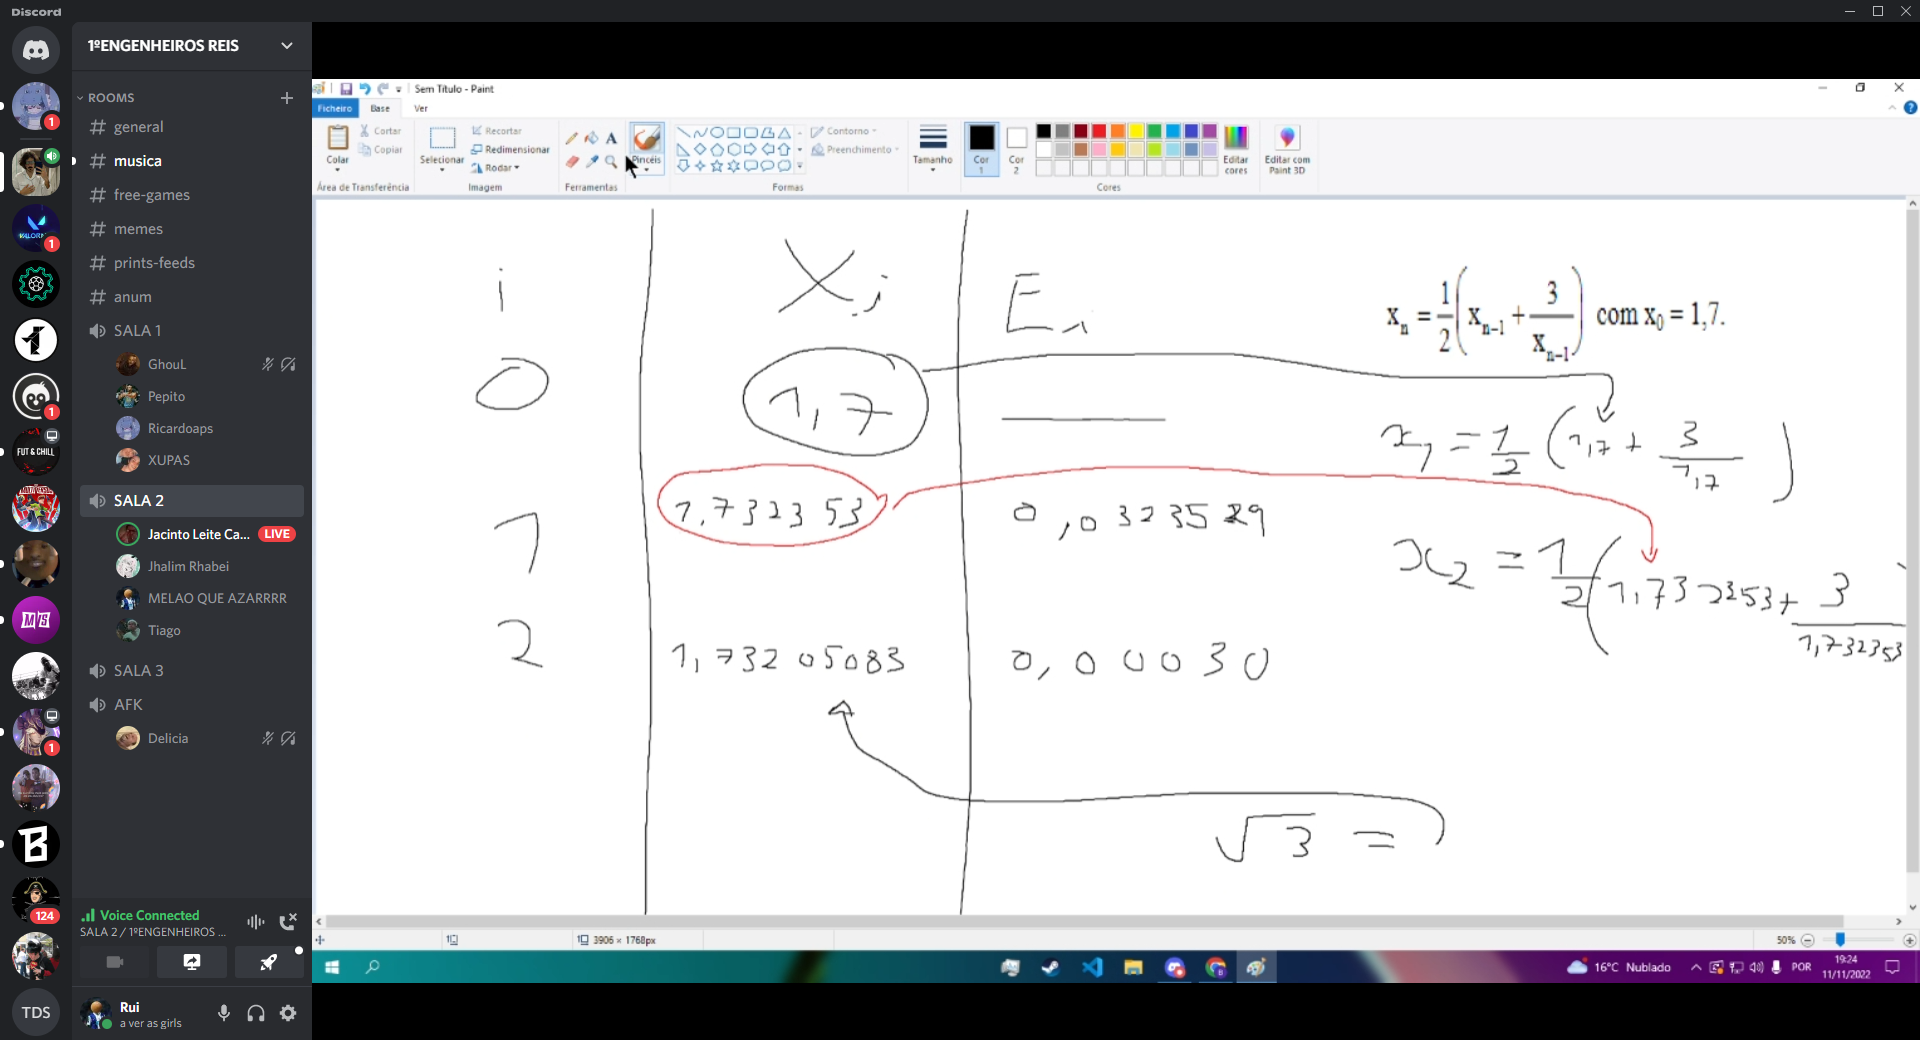 Discord
1ºENGENHEIROS REIS
ROOMS
general
musica
free-games
memes
prints-feeds
anum
SALA 1
GhouL
Pepito
Ricardoaps
XUPAS
SALA 2
Jacinto Leite Ca... LIVE
Jhalim Rhabei
MELAO QUE AZARRRR
Tiago
SALA 3
AFK
Delicia
Voice Connected
SALA 2 / 1ºENGENHEIROS ...
Rui
a ver as girls
1
1
VALORANT
1
FUT & CHILL
M/S
1
124
TDS
Sem Título - Paint
Ficheiro Base Ver
Colar
Cortar
Copiar
Área de Transferência
Selecionar
Recortar
Redimensionar
Rodar
Imagem
A
Ferramentas
Pincéis
Formas
Contorno
Preenchimento
Tamanho
Cor 1
Cor 2
Editar cores
Cores
Editar com Paint 3D
i Xi Ei
0 1,7
1 1,7323353 0,0323529
2 1,73205083 0,00030
xn = 1/2 (xn-1 + 3/xn-1) com x0 = 1,7.
x1 = 1/2 (1,7 + 3/1,7)
x2 = 1/2 (1,7322353 + 3/1,7323353
√3 =
3906 × 1768px
50%
16°C Nublado
POR
19:24
11/11/2022